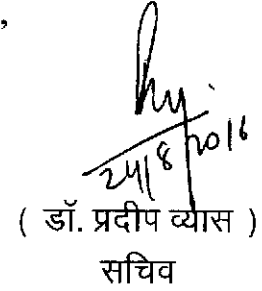 ,
24/8/2016
( डॉ. प्रदीप व्यास )
सचिव